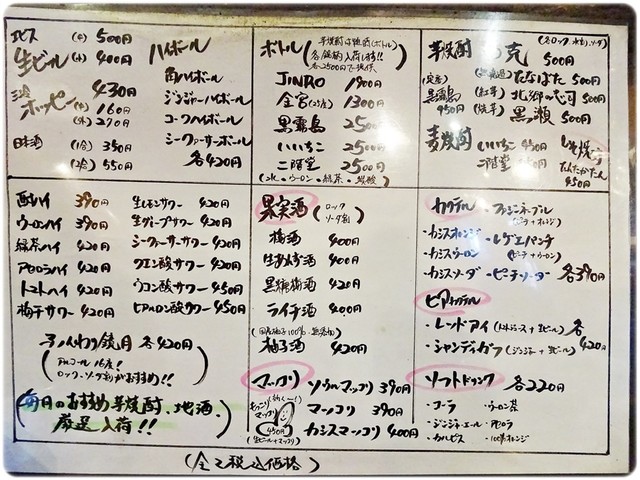 ヱビス (中) 500円
生ビール (小) 400円
三冷ホッピー 430円
(中) 160円
(外) 270円
日本酒 (1合) 350円
(2合) 550円
ハイボール
角ハイボール
ジンジャーハイボール
コークハイボール
シークヮーサーボール
各420円
ボトル (芋焼酎 (ボトル)
各銘柄入荷します!!
各2500円で提供
JINRO 1900円
金宮 1300円
黒霧島 2500円
いいちこ 2500円
二階堂 2500円
(水・ウーロン・緑茶・炭酸)
芋焼酎 克 500円
(各ロック、水わり、ソーダ)
たなばた 500円
黒霧島 450円
(紅芋) 北郷 500円
黒瀬 500円
麦焼酎 いいちこ 450円
二階堂 500円
しそ焼酎
たんたかたん
450円
酎ハイ 390円
ウーロンハイ 390円
緑茶ハイ 420円
アセロラハイ 420円
トマトハイ 420円
梅干サワー 420円
生レモンサワー 420円
生グレープサワー 420円
シークヮーサーサワー 420円
クエン酸サワー 420円
ウコン酸サワー 450円
ヒアルロン酸サワー 450円
そふんわり鏡月 各420円
(アルコール16度!
ロック、ソーダ割がおすすめ!!)
毎日のおすすめ芋焼酎、地酒、
厳選入荷!!
果実酒 (ロック
ソーダ割)
梅酒 400円
生あんず酒 400円
黒糖梅酒 420円
ライチ酒 400円
(国産柚子100%・無添加)
柚子酒 420円
マッコリ
ソウルマッコリ 390円
マッコリ 390円
カシスマッコリ 400円
450円
(生ビール+マッコリ)
カクテル
・ファジーネーブル
(ピーチ+オレンジ)
・カシスオレンジ
・レゲエパンチ
(ピーチ+ウーロン)
・カシスウーロン
・カシスソーダ
・ピーチソーダー 各390円
ビアカクテル
・レッドアイ (トマトジュース+生ビール)
・シャンディガフ (ジンジャー+生ビール)
各420円
ソフトドリンク 各220円
・コーラ
・ウーロン茶
・ジンジャエール
・アセロラ
・カルピス
・100%オレンジ
(全て税込価格)